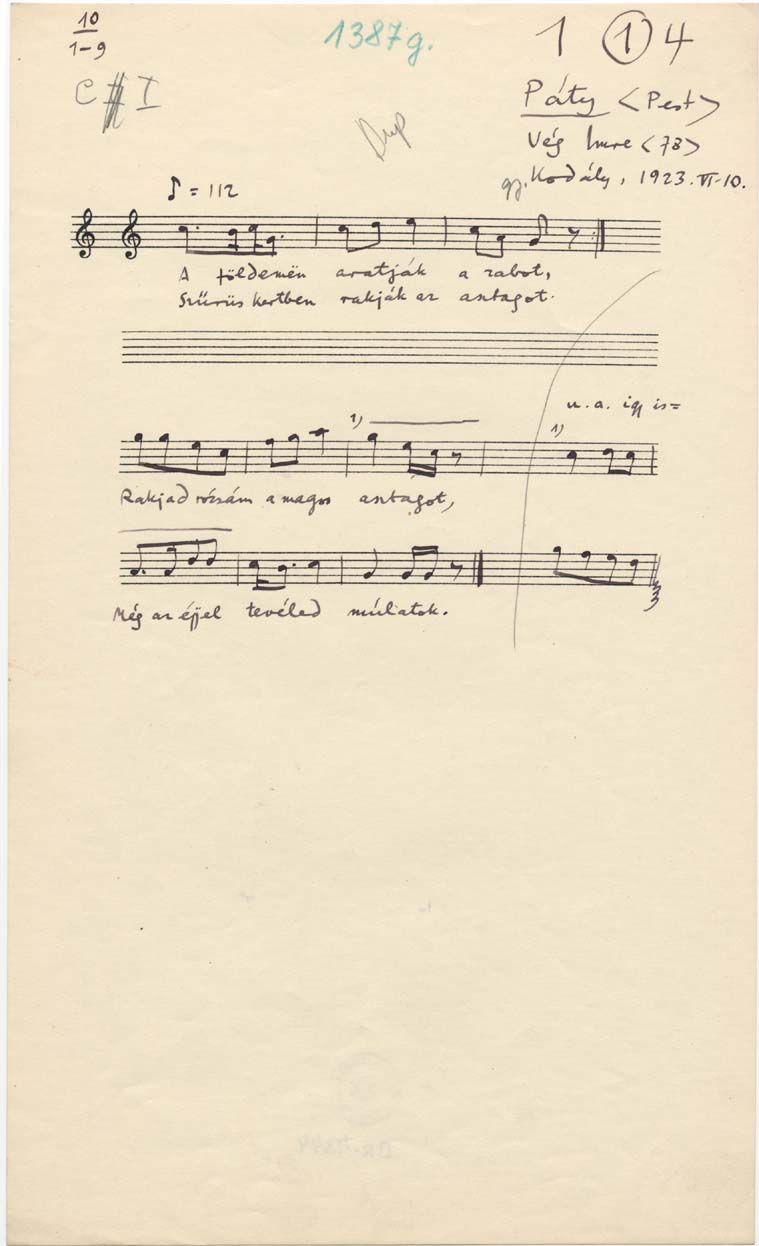 10
1-9
1387g.
1 1 4
C I
Dup
Páty <Pest>
Vég Imre <78>
gy. Kodály, 1923. VI. 10.
♪ = 112
A földemën aratják a zabot,
Szűrüs kertben rakják az asztagot.
u. a. így is =
1)
1)
Rakjad rózsám a magos asztagot,
Még az éjjel tevéled múlatok.